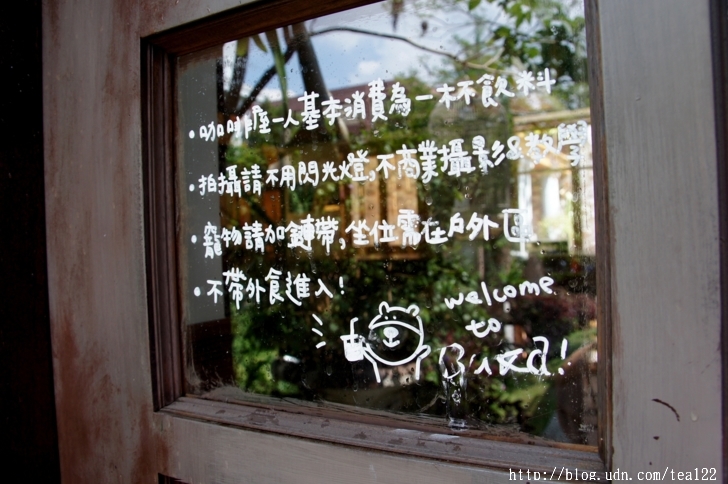 •咖啡座一人基本消費為一杯飲料
•拍攝請不用閃光燈,不商業攝影&教學
•寵物請加鏈帶,坐位需在戶外區
•不帶外食進入!
welcome
to
http://blog.udn.com/tea122